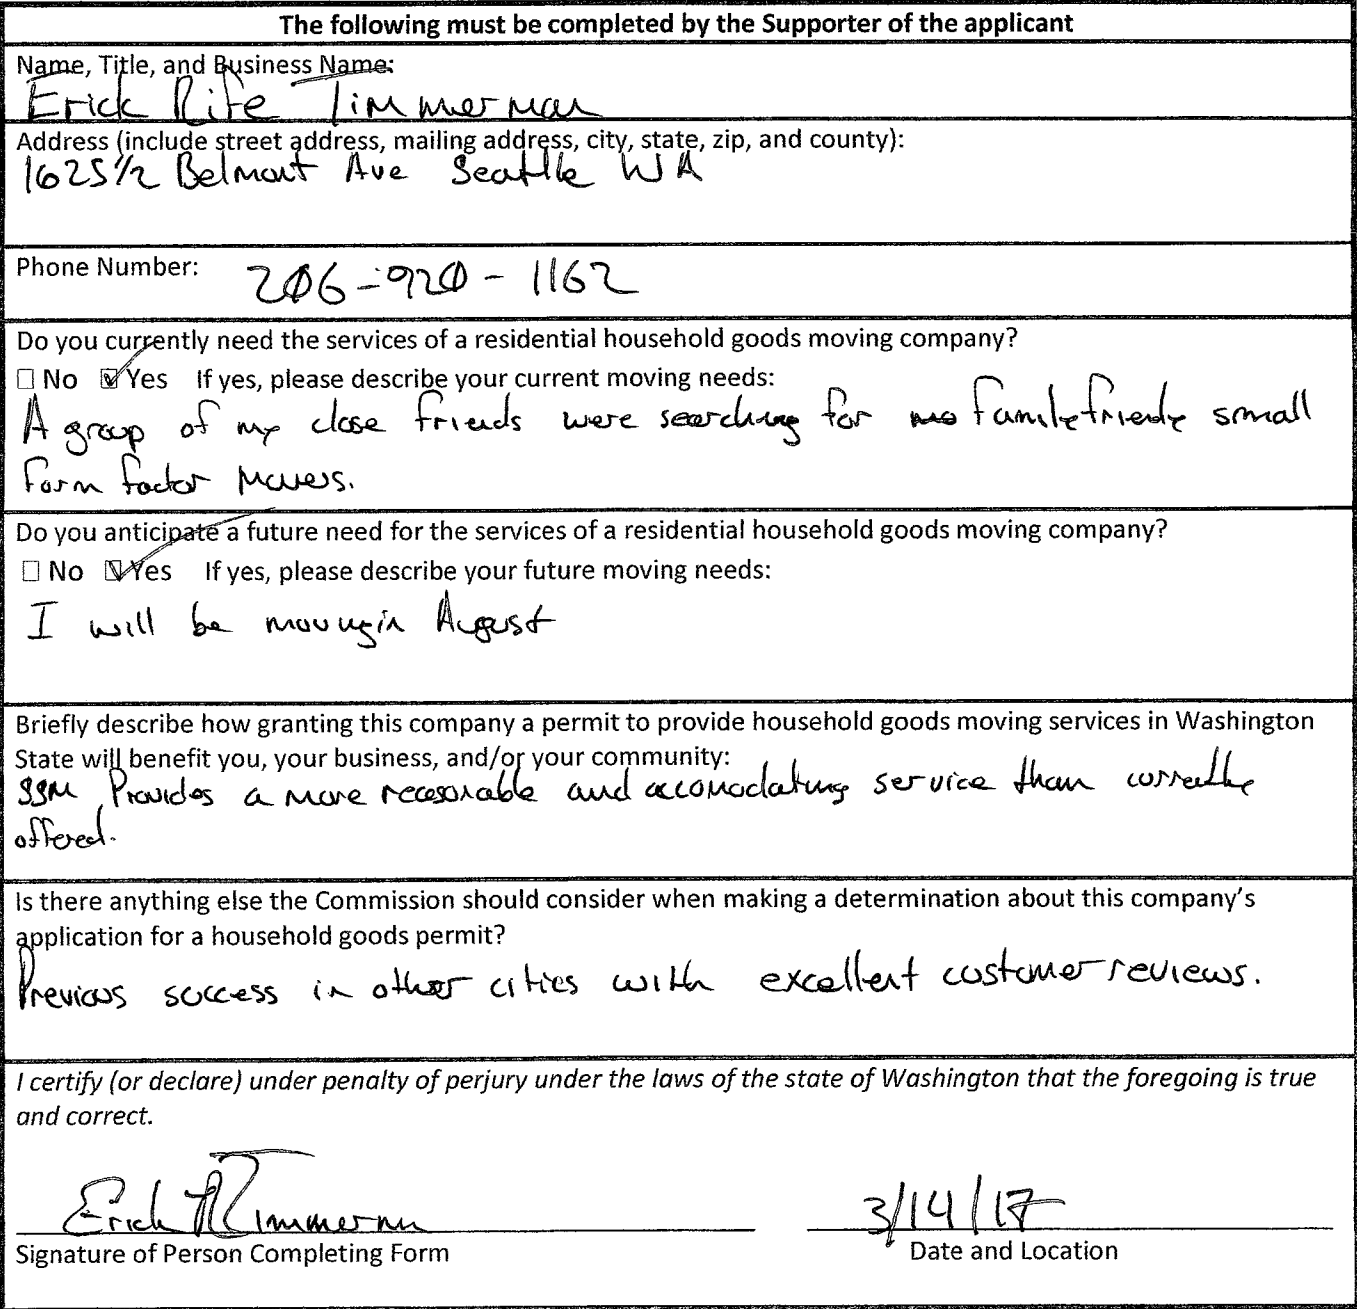 The following must be completed by the Supporter of the applicant
Name, Title, and Business Name:
Erick Rife Timmerman
Address (include street address, mailing address, city, state, zip, and county):
1625 1/2 Belmont Ave Seattle WA
Phone Number: 206-920-1162
Do you currently need the services of a residential household goods moving company?
☐ No ☑ Yes If yes, please describe your current moving needs:
A group of my close friends were searching for family friendly small
form factor movers.
Do you anticipate a future need for the services of a residential household goods moving company?
☐ No ☑ Yes If yes, please describe your future moving needs:
I will be moving in August
Briefly describe how granting this company a permit to provide household goods moving services in Washington
State will benefit you, your business, and/or your community:
SSM Provides a more reasonable and accomodating service than currently
offered.
Is there anything else the Commission should consider when making a determination about this company's
application for a household goods permit?
Previous success in other cities with excellent customer reviews.
I certify (or declare) under penalty of perjury under the laws of the state of Washington that the foregoing is true
and correct.
Erick R Timmerman 3/14/17
Signature of Person Completing Form Date and Location